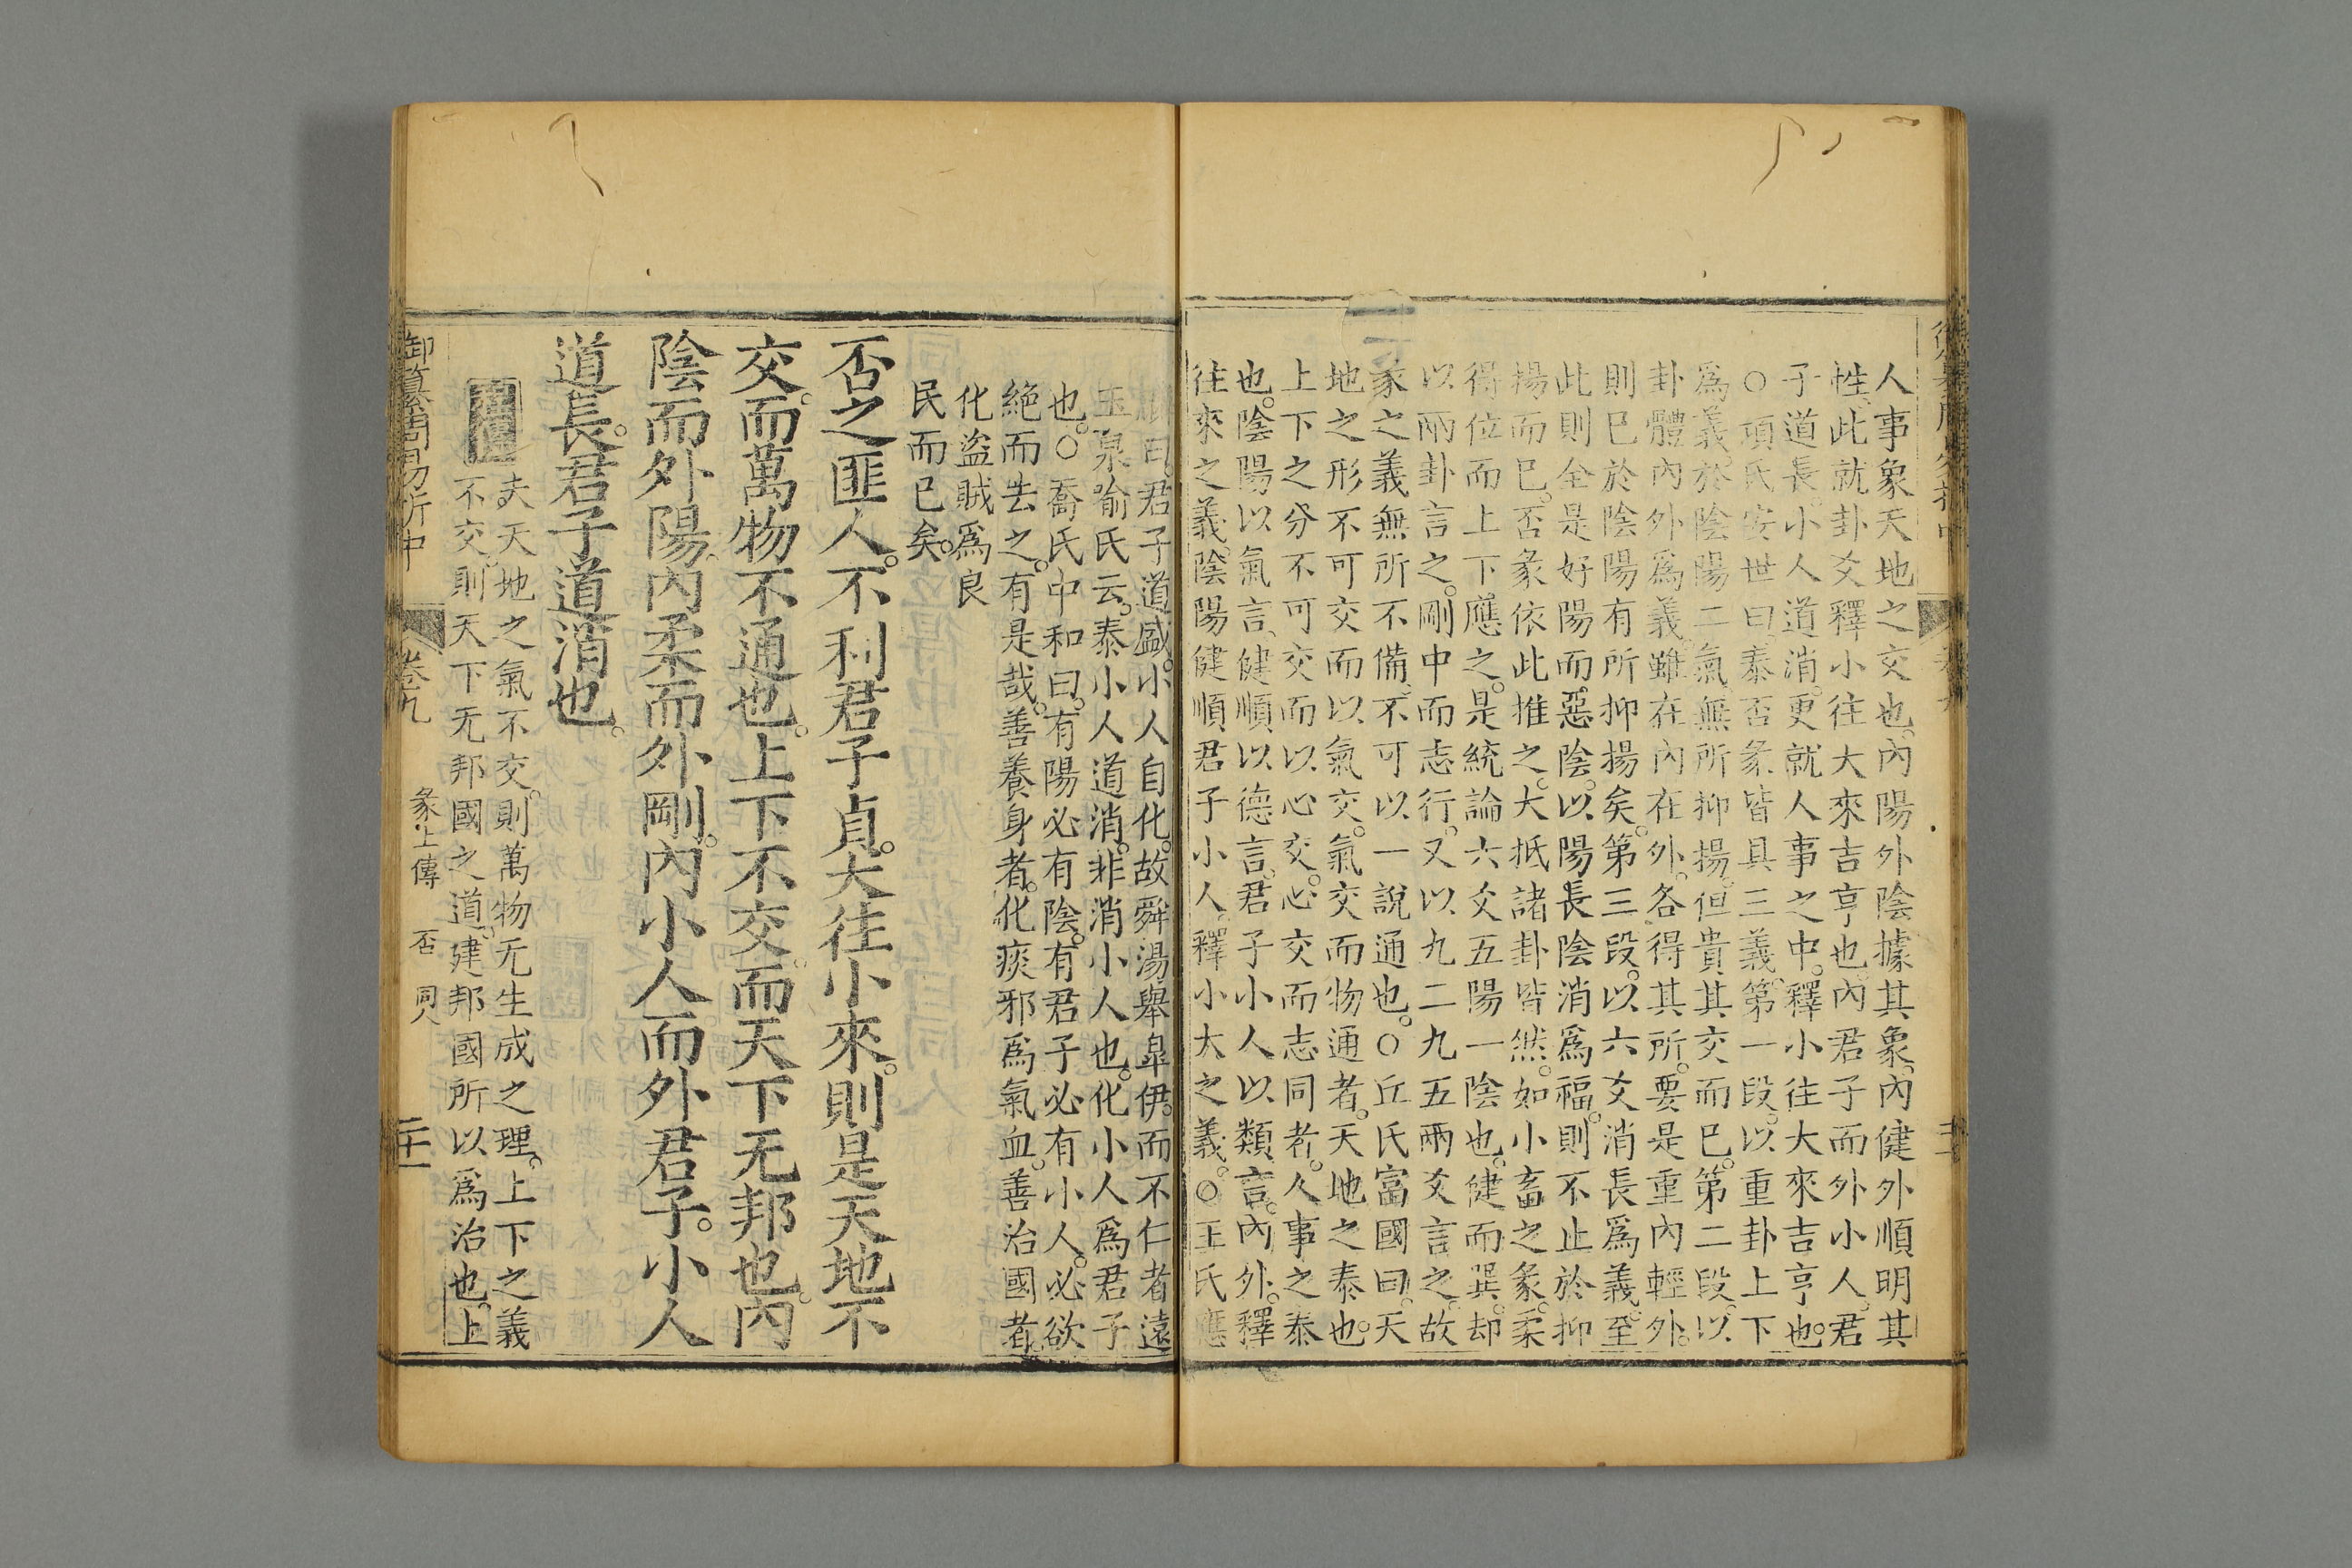 人事象天地之交也。內陽外陰據其象。內健外順明其
性。此就卦爻釋小往大來吉亨也。內君子而外小人。君
子道長。小人道消。更就人事之中。釋小往大來吉亨也。
○項氏安世曰。泰否彖皆具三義。第一段。以重卦上下
爲義。於陰陽二氣。無所抑揚。但貴其交而已。第二段。以
卦體內外爲義。雖在內在外。各得其所。要是重內輕外。
則已於陰陽有所抑揚矣。第三段。以六爻消長爲義。至
此則全是好陽而惡陰。以陽長陰消爲福。則不止於抑
揚而已。否彖依此推之。大抵諸卦皆然。如小畜之彖。柔
得位而上下應之。是統論六爻五陽一陰也。健而巽。却
以兩卦言之。剛中而志行。又以九二九五兩爻言之。故
彖之義無所不備。不可以一說通也。○丘氏富國曰。天
地之形不可交而以氣交。氣交而物通者。天地之泰也。
上下之分不可交而以心交。心交而志同者。人事之泰
也。陰陽以氣言。健順以德言。君子小人以類言。內外。釋
往來之義。陰陽健順君子小人。釋小大之義。○王氏應
麟曰。君子道盛。小人自化。故舜湯舉皐伊。而不仁者遠。
玉泉喻氏云。泰小人道消。非消小人也。化小人爲君子
也。○喬氏中和曰。有陽必有陰。有君子必有小人。必欲
絕而去之。有是哉。善養身者。化痰邪爲氣血。善治國者。
化盜賊爲良
民而已矣。
否之匪人。不利君子貞。大往小來。則是天地不
交。而萬物不通也。上下不交。而天下无邦也。內
陰而外陽。內柔而外剛。內小人而外君子。小人
道長。君子道消也。
夫天地之氣不交。則萬物无生成之理。上下之義
不交。則天下无邦國之道。建邦國所以爲治也。上
御纂周易折中 卷九 彖上傳 否 同人 二十一